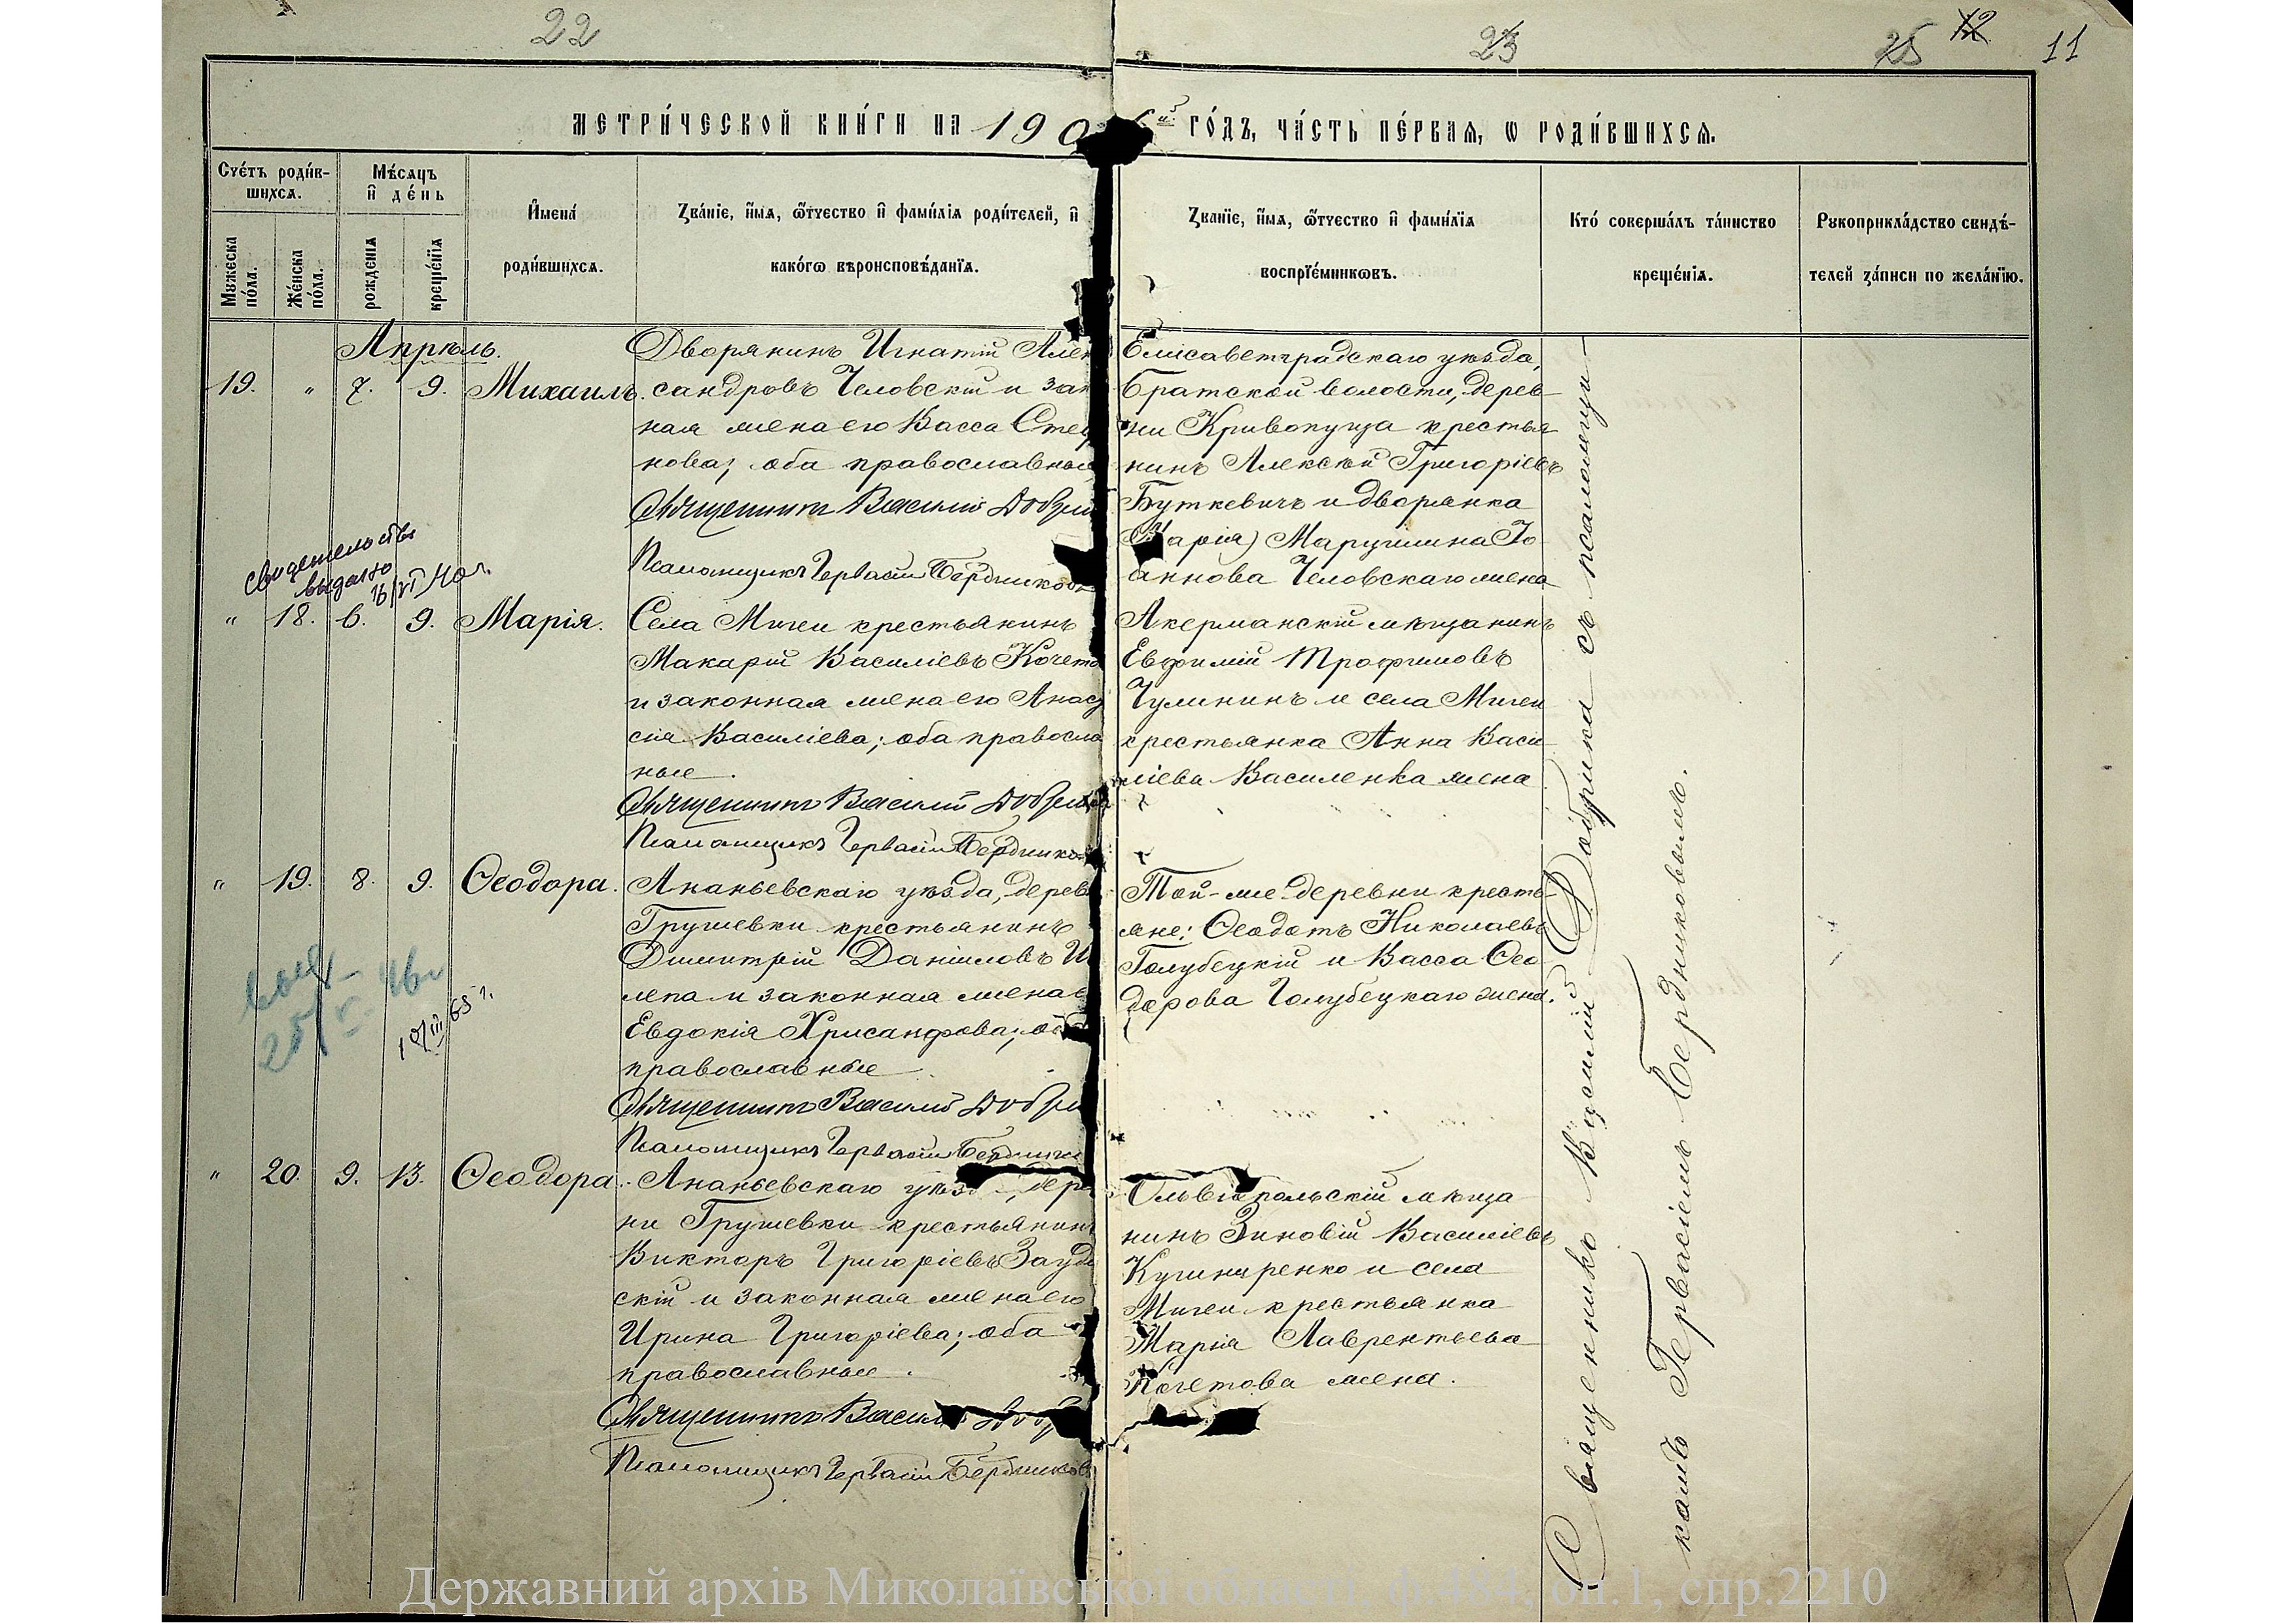 22
23
25 12 11
МЕТРИ́ЧЕСКОЙ КНИ́ГИ НА 190 6й ГО́ДЪ, ЧА́СТЬ ПЕ́РВАЯ, Ѡ РОДИ́ВШИХСЯ.
Сче́тъ роди́в-
шихся.
Мѣ́сяцъ
и҆ де́нь
Мужеска по́ла.
Же́нска по́ла.
рожденїя
креще́нїя
И҆мена́
роди́вшихся.
Зва́нїе, и҆́мя, ѻ҆́тчество и҆ фами́лїя роди́телей, и҆
како́гѡ вѣроисповѣ́данїя.
Зва́нїе, и҆́мя, ѻ҆́тчество и҆ фами́лїя
воспрїе́мникѡвъ.
Кто́ соверша́лъ та́инство
креще́нїя.
Рукоприкла́дство свидѣ́-
телей за́писи по жела́нїю.
Апрѣль.
19. " 7. 9. Михаилъ.
Дворянинъ Игнатій Алек
сандровъ Чeловскій и зак
ная жена его Васса Сте
нова; оба православные
Священникъ Василій Добри
Псаломщикъ Гервасій Бердников
Елисаветградскаго уѣзда,
Братской волости, дерев-
ни Кривопуща крестья
нинъ Алексѣй Григоріевъ
Буткевичъ и дворянка
(Марія) Іо
аннова Чeловскаго жена
Свидетельство
выдано
16/VI 40 г.
" 18. 6. 9. Марія.
Села Мигеи крестьянинъ
Макарій Василіевъ Кочето
и законная жена его Анас
сія Василіева; оба правосла
ные.
Священникъ Василій Добри
Псаломщикъ Гервасій Бердников
Акерманскій мѣщанинъ
Евфимій Трофимовъ
и села Мигеи
крестьянка Анна Васи-
ліева Василенка жена
" 19. 8. 9. Ѳеодора.
Ананьевскаго уѣзда, дерев
Грушевки крестьянинъ
Димитрій Даніиловъ
и законная жена е
Евдокія Хрисанфова; об
православные.
Священникъ Василій Добри
Псаломщикъ Гервасій Бердник
Той-же деревни кресть-
яне: Ѳеодотъ Николаевъ
Голубецкій и Васса Ѳео
дорова Голубецкаго жена.
25/V 46 г
10/III 65 г.
" 20. 9. 13. Ѳеодора.
Ананьевскаго уѣзд , дере
ни Грушевки крестьянинъ
Викторъ Григоріевъ
скій и законная жена его
Ирина Григоріева; оба
православные.
Священникъ Васил Добр
Псаломщикъ Гервасій Бердников
Ольвіопольскій мѣща
нинъ Зиновій Василіевъ
Кушниренко и села
Мигеи крестьянка
Марія Лаврентьева
Кочетова жена.
Священникъ Василій Добрика съ псаломщи-
комъ Гервасіемъ Бердниковымъ.
Державний архів Миколаївської області, ф.484, оп.1, спр.2210